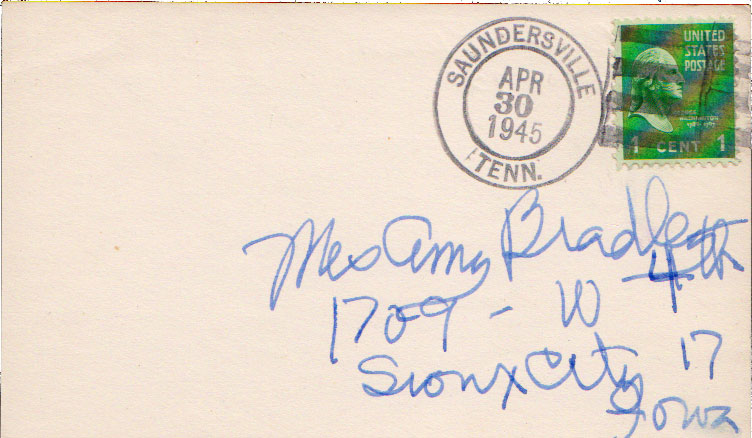 SAUNDERSVILLE
APR
30
1945
TENN.
UNITED
STATES
POSTAGE
WASHINGTON
1 CENT 1
Mrs Amy Bradley
1709 - W 4th
Sioux City 17
Iowa